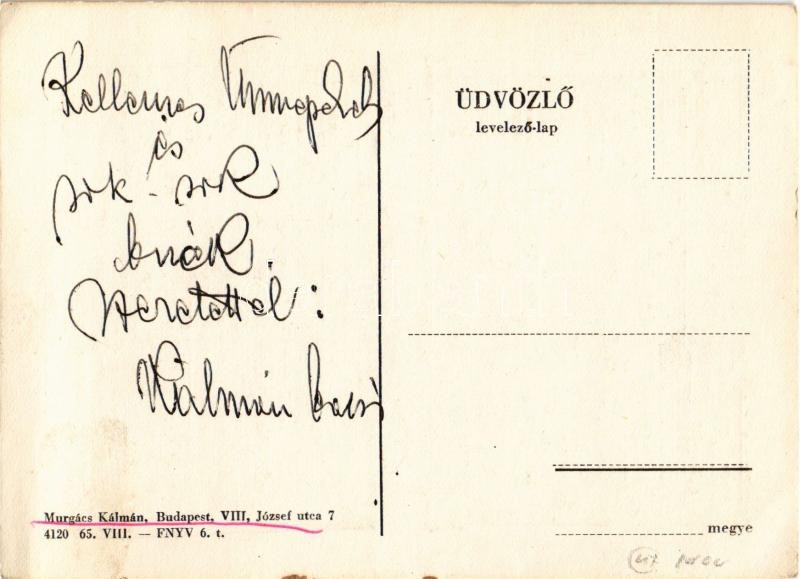 Kellemes Ünnepeket
és
sok-sok
Szeretettel:
Kálmán bácsi
ÜDVÖZLŐ
levelező-lap
Murgács Kálmán, Budapest, VIII, József utca 7
4120 65. VIII. — FNYV 6. t.
megye